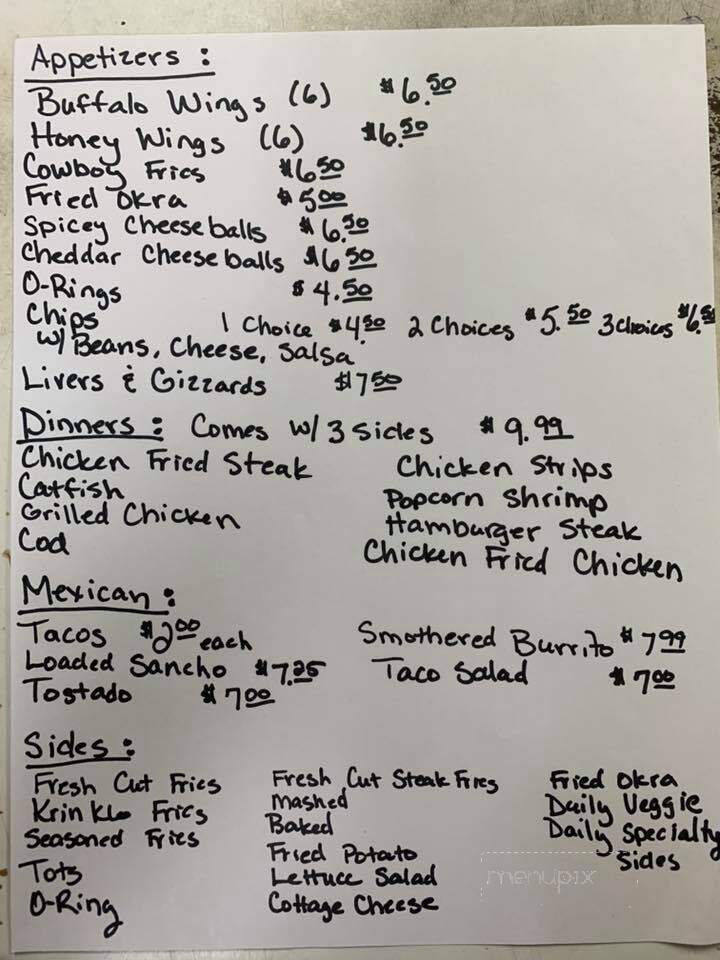 Appetizers :
Buffalo Wings (6) $6.50
Honey Wings (6) $6.50
Cowboy Fries $6.50
Fried Okra $5.00
Spicey Cheeseballs $6.50
Cheddar Cheeseballs $6.50
O-Rings $4.50
Chips 1 Choice $4.50 2 Choices $5.50 3 Choices $6.50
w/ Beans, Cheese, Salsa
Livers & Gizzards $7.50
Dinners : Comes w/ 3 Sides $9.99
Chicken Fried Steak Chicken Strips
Catfish Popcorn Shrimp
Grilled Chicken Hamburger Steak
Cod Chicken Fried Chicken
Mexican :
Tacos $2.00 each Smothered Burrito $7.99
Loaded Sancho $7.25 Taco Salad $7.00
Tostado $7.00
Sides :
Fresh Cut Fries Fresh Cut Steak Fries Fried Okra
Krinkle Fries Mashed Daily Veggie
Seasoned Fries Baked Daily Specialty
Fried Potato Sides
Tots Lettuce Salad
O-Ring Cottage Cheese
menupix